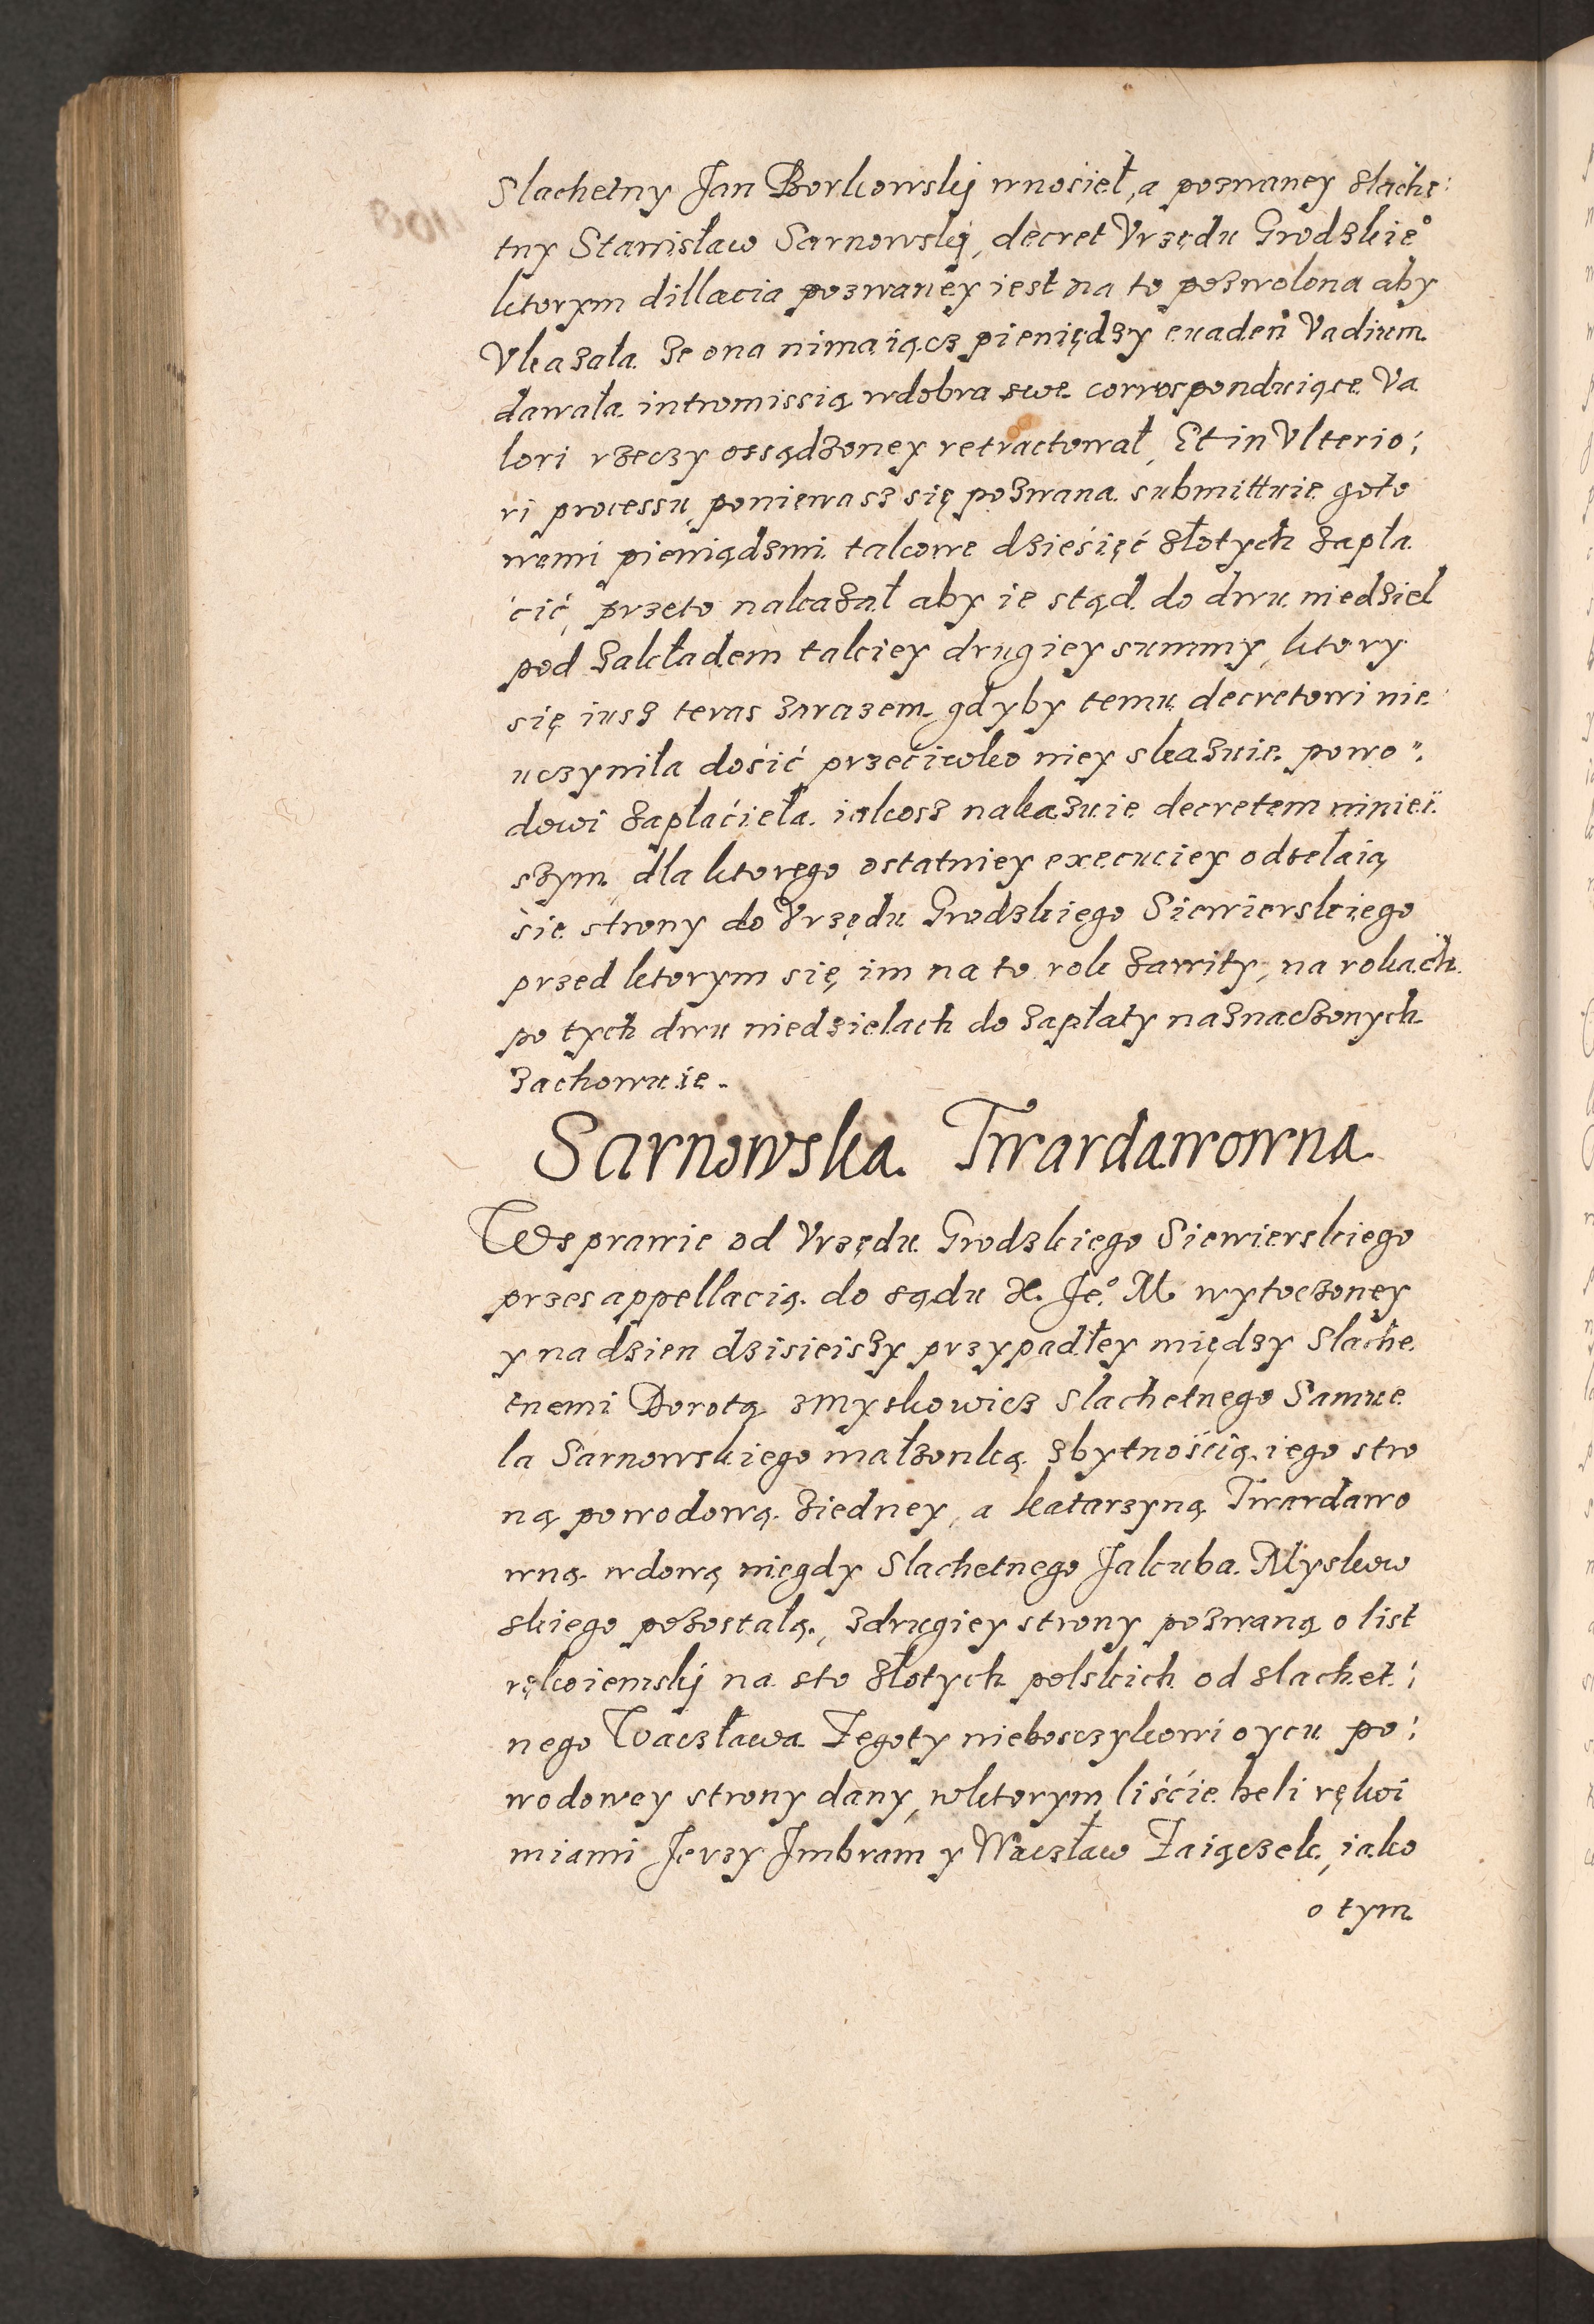 Slachetny Jan Borkowskij wnosieł, a pozwaney slache:
tny Stanisław Sarnowskij, decret Vrzędu Grodzkie°
ktorym dillacia pozwaney iest na to pozwolona aby
Vkazała że ona nimaiącz pieniędzy euaden° Vadium
dawała intromissią wdobra swe correspon­duiące Va
lori rzeczy ossądzoney retractował, Et in Vlterio:
ri processu, poniewasz się pozwana submittuie goto
wemi pieniądzmi takowe dzieśięć złotych zapła
ćić, przeto nakazał aby ie stąd do dwu niedziel
pod zakładem takiey drugiey summy, ktory
się iusz teras zarazem gdyby temu decretowi nie
uczyniła dośić przećiwko niey skazuie powo:
dowi zapłaćieła iakosz nakazuie decretem niniei
szym dla ktorego ostatniey execuciey odsełaią
sie strony do Vrzędu Grodzkiego Siewierskiego
przed ktorym się im na to rok zawity, na rokach
po tych dwu niedzielach do zapłaty naznaczonych
zachowuie.
Sarnowska Twardawowna
Wsprawie od Vrzędu Grodzkiego Siewierskiego
przes appellacią do sądu X. Je° M wytoczoney
y na dzien dzisieiszy przypadłey między Slache
tnemi Dorotą zmyskowicz slachetnego Samue
la Sarnowskiego małżonką zbytnośćią iego stro
ną powodową ziedney, a katarzyną Twardawo
wną wdową niegdy Slachetnego Jakuba Myskow
skiego pozostałą, zdrugiey strony pozwaną o list
rękoiemskij na sto złotych polskich od slachet:
nego Wacława Żegoty nieboszczykowi oycu po:
wodowey strony dany, wktorym liśćie beli rękoi
miami Jerzy Jmbram y Wacsław Zaiączek, iako
o tym